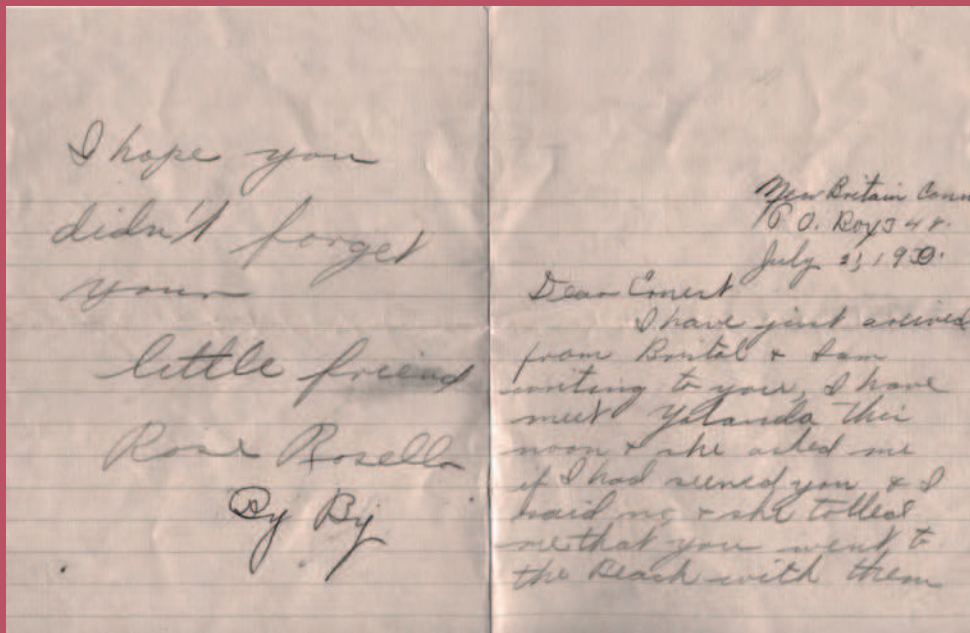 I hope you
didn't forget
your
little friend
Rose Rosella
By By
New Britain Conn
P. O. Box 348.
July 21, 1930.
Dear Ernest
I have just arrived
from Bristol & I am
writing to you, I have
meet Yolanda this
noon & she asked me
if I had seened you & I
said no & she tolled
me that you went to
the Beach with them